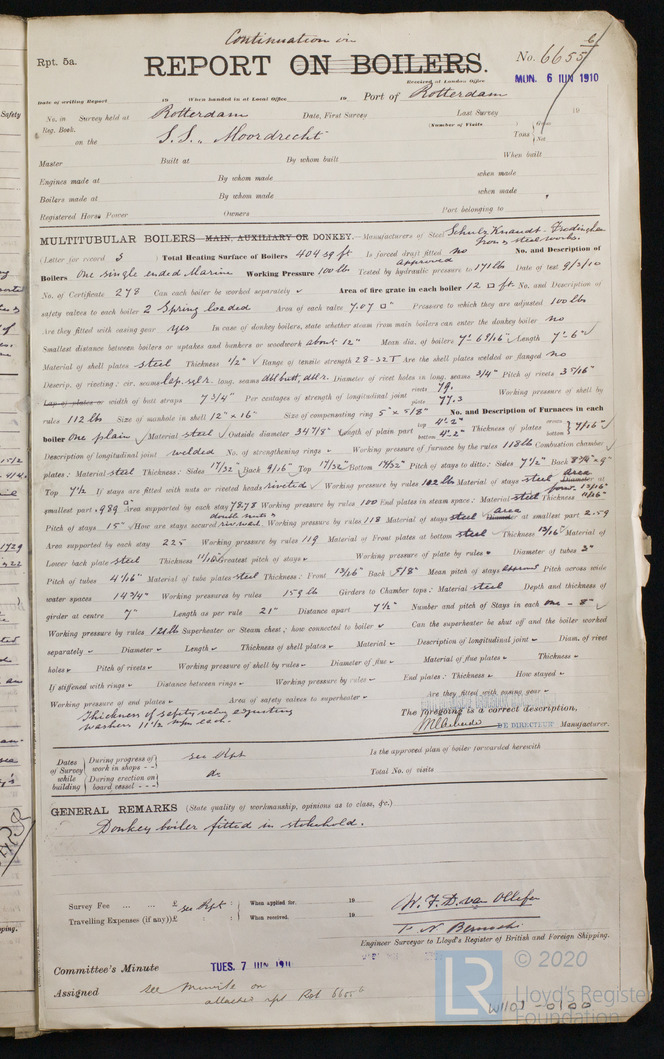 Continuation in
6
Rpt. 5a.
REPORT ON BOILERS.
No. 6655
Received at London Office
MON. 6 JUN 1910
Date of writing Report 19 When handed in at Local Office 19 Port of Rotterdam
No. in Survey held at Rotterdam Date, First Survey Last Survey 19
Reg. Book. (Number of Visits
on the S.S. "Moordrecht" Tons Gross Net
Master Built at By whom built When built
Engines made at By whom made when made
Boilers made at By whom made when made
Registered Horse Power Owners Port belonging to
MULTITUBULAR BOILERS MAIN, AUXILIARY OR DONKEY.—Manufacturers of Steel Schulz Knaudt. Frodingham Iron & Steel works.
(Letter for record S ) Total Heating Surface of Boilers 404 sq ft Is forced draft fitted no No. and Description of
Boilers One single ended Marine Working Pressure 100 lbs Tested by hydraulic pressure to 171 lb Date of test 9/3/10
No. of Certificate 278 Can each boiler be worked separately ✓ Area of fire grate in each boiler 12 □ ft. No. and Description of
safety valves to each boiler 2 Spring loaded Area of each valve 7.07 □" Pressure to which they are adjusted 100 lbs
Are they fitted with easing gear yes In case of donkey boilers, state whether steam from main boilers can enter the donkey boiler no
Smallest distance between boilers or uptakes and bunkers or woodwork about 12" Mean dia. of boilers 7'- 6 9/16" Length 7'-6"
Material of shell plates steel Thickness 1/2" Range of tensile strength 28-32 T Are the shell plates welded or flanged no
Descrip. of riveting: cir. seams lap sgl r. long. seams dbl butt, dbl r. Diameter of rivet holes in long. seams 3/4" Pitch of rivets 3 5/16"
Lap of plates or width of butt straps 7 3/4" Per centages of strength of longitudinal joint rivets 79. plate 77.3 Working pressure of shell by
rules 112 lb Size of manhole in shell 12" x 16" Size of compensating ring 5" x 5/8" No. and Description of Furnaces in each
boiler one plain Material steel Outside diameter 34 7/8" Length of plain part top 4'-2" bottom 4'-2" Thickness of plates crown bottom 7/16"
Description of longitudinal joint welded No. of strengthening rings ✓ Working pressure of furnace by the rules 118 lb Combustion chamber
plates: Material steel Thickness: Sides 17/32 Back 9/16" Top 17/32" Bottom 17/32" Pitch of stays to ditto: Sides 7 1/2" Back 8 3/4" x 9"
Top 7 1/2 If stays are fitted with nuts or riveted heads riveted Working pressure by rules 102 lb Material of stays steel Area Diameter at
smallest part .989 □" Area supported by each stay 78.78 Working pressure by rules 100 End plates in steam space: Material steel Thickness front 13/16" 11/16"
Pitch of stays 15" How are stays secured double nuts & riv. wed. Working pressure by rules 118 Material of stays steel Area Diameter at smallest part 2.59
Area supported by each stay 225 Working pressure by rules 119 Material of Front plates at bottom steel Thickness 13/16" Material of
Lower back plate steel Thickness 11/16" Greatest pitch of stays ✓ Working pressure of plate by rules ✓ Diameter of tubes 3"
Pitch of tubes 4 1/16" Material of tube plates steel Thickness: Front 13/16" Back 5/8" Mean pitch of stays approved Pitch across wide
water spaces 14 3/4" Working pressures by rules 159 lb Girders to Chamber tops: Material steel Depth and thickness of
girder at centre 7" Length as per rule 21" Distance apart 7 1/2" Number and pitch of Stays in each one - 8"
Working pressure by rules 121 lb Superheater or Steam chest; how connected to boiler ✓ Can the superheater be shut off and the boiler worked
separately ✓ Diameter ✓ Length ✓ Thickness of shell plates ✓ Material ✓ Description of longitudinal joint ✓ Diam. of rivet
holes ✓ Pitch of rivets ✓ Working pressure of shell by rules ✓ Diameter of flue ✓ Material of flue plates ✓ Thickness ✓
If stiffened with rings ✓ Distance between rings ✓ Working pressure by rules ✓ End plates: Thickness ✓ How stayed ✓
Working pressure of end plates ✓ Area of safety valves to superheater ✓ Are they fitted with easing gear ✓
Thickness of safety valve adjusting
washers 11 1/2 m/m each.
The foregoing is a correct description,
DE DIRECTEUR Manufacturer.
Dates of Survey while building During progress of work in shops - - see Rpt Is the approved plan of boiler forwarded herewith
During erection on board vessel - - - do Total No. of visits
GENERAL REMARKS (State quality of workmanship, opinions as to class, &c.)
Donkey boiler fitted in stokehold.
Survey Fee ... ... £ see Rpt : When applied for. 19
Travelling Expenses (if any) £ : : When received. 19
W. F. D. van Ollefen
Engineer Surveyor to Lloyd's Register of British and Foreign Shipping.
Committee's Minute TUES. 7 JUN 1910
Assigned See minute on
attached rpt Rot 6655
LR
© 2020
Lloyd's Register
Foundation
W1107-0100